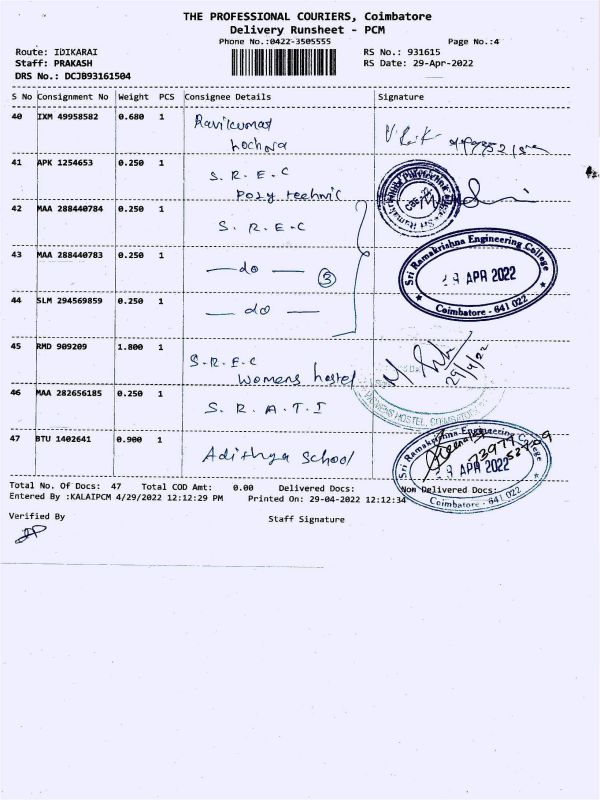 THE PROFESSIONAL COURIERS, Coimbatore
Delivery Runsheet - PCM
Phone No.:0422-3505555 Page No.:4
Route: IDIKARAI RS No.: 931615
Staff: PRAKASH RS Date: 29-Apr-2022
DRS No.: DCJB93161504
S No Consignment No Weight PCS Consignee Details Signature
40 IXM 49958582 0.680 1 Ravikumar
41 APK 1254653 0.250 1 S. R. E. C
Poly technic
42 MAA 288440784 0.250 1 S. R. E-C
43 MAA 288440783 0.250 1 — do — 3
44 SLM 294569859 0.250 1 — do —
Sri Ramakrishna Engineering College
APR 2022
Coimbatore - 641 022
45 RMD 909209 1.800 1 S.R.E.C
Womens hostel
29/4/22
WOMENS HOSTEL, COIMBATORE
46 MAA 282656185 0.250 1 S. R. A. T. I
47 BTU 1402641 0.900 1 Adithya School
Sri Ramakrishna Engineering College
APR 2022
Coimbatore - 641 022
Total No. Of Docs: 47 Total COD Amt: 0.00 Delivered Docs: Non Delivered Docs:
Entered By :KALAIPCM 4/29/2022 12:12:29 PM Printed On: 29-04-2022 12:12:34
Verified By Staff Signature